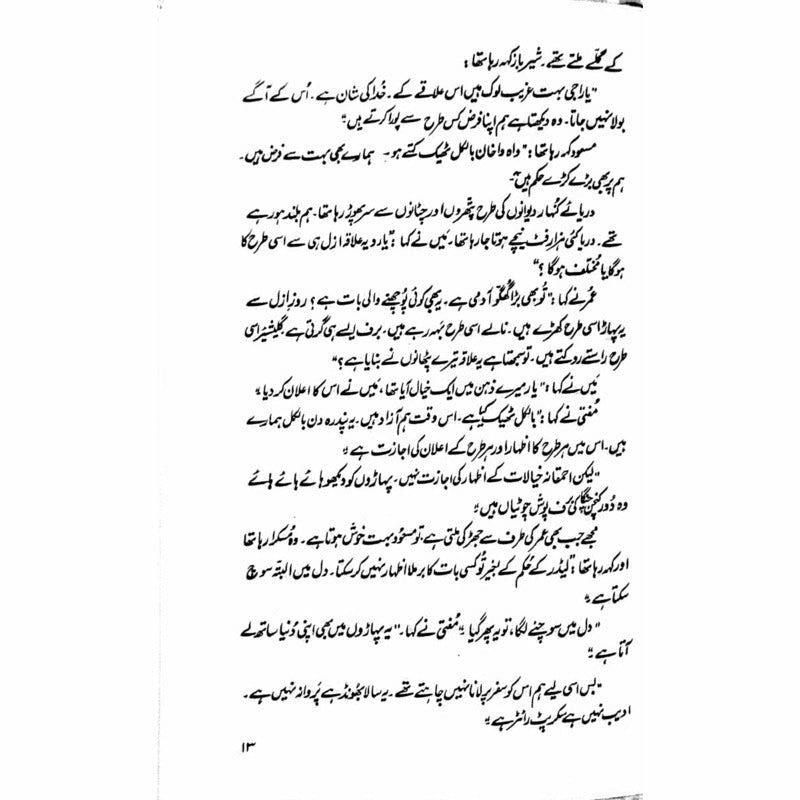 کے گملے ملتے تھے۔ شیر باز کہہ رہا تھا:
"یارا جی بہت غریب لوگ ہیں اس علاقے کے۔ خُدا کی شان ہے۔ اُس کے آگے
بولا نہیں جاتا۔ وہ دیکھتا ہے ہم اپنا فرض کس طرح سے پورا کرتے ہیں۔"
مسعود کہہ رہا تھا: "واہ وا خان بالکل ٹھیک کہتے ہو ۔ ہمارے بھی بہت سے فرض ہیں۔
ہم پر بھی بڑے کڑے حکم ہیں۔"
دریائے کنہار دیوانوں کی طرح پتھروں اور چٹانوں سے سر پھوڑ رہا تھا۔ ہم بلند ہو رہے
تھے۔ دریا کئی ہزار فٹ نیچے ہوتا جا رہا تھا۔ مَیں نے کہا: "یارو یہ علاقہ ازل ہی سے اسی طرح کا
ہو گا یا مختلف ہو گا ؟"
عمر نے کہا: "تُو بھی بڑا گھگو آدمی ہے۔ یہ بھی کوئی پُوچھنے والی بات ہے؟ روزِ ازل سے
یہ پہاڑ اسی طرح کھڑے ہیں۔ نالے اسی طرح بہہ رہے ہیں۔ برف ایسے ہی گرتی ہے گلیشیئر اسی
طرح راستے روکتے ہیں۔ تو سمجھتا ہے یہ علاقہ تیرے پٹھانوں نے بنایا ہے؟"
مَیں نے کہا: "یار میرے ذہن میں ایک خیال آیا تھا، مَیں نے اس کا اعلان کر دیا۔"
مُفتی نے کہا: "بالکل ٹھیک کیا ہے۔ اس وقت ہم آزاد ہیں۔ یہ پندرہ دن بالکل ہمارے
ہیں۔ اس میں ہر طرح کا اظہار اور ہر طرح کے اعلان کی اجازت ہے۔"
"لیکن احمقانہ خیالات کے اظہار کی اجازت نہیں۔ پہاڑوں کو دیکھو ہائے ہائے ہائے
وہ دُور کنچن چنگا کی برف پوش چوٹیاں ہیں۔"
مجھے جب بھی عمر کی طرف سے جھڑکی ملتی ہے، تو مسعود بہت خوش ہوتا ہے۔ وہ مُسکرا رہا تھا
اور کہہ رہا تھا: "لیڈر کے حُکم کے بغیر تُو کسی بات کا برملا اظہار نہیں کر سکتا۔ دل میں البتّہ سوچ
سکتا ہے۔"
"دل میں سوچنے لگا، تو یہ پھر گیا۔" مُفتی نے کہا۔ "یہ پہاڑوں میں بھی اپنی دُنیا ساتھ لے
آتا ہے۔"
"بس اسی لیے ہم اس کو سفر پر لانا نہیں چاہتے تھے۔ یہ سالا بھُونڈ ہے پروانہ نہیں ہے۔
ادیب نہیں ہے سکرپٹ رائٹر ہے۔"
۱۳